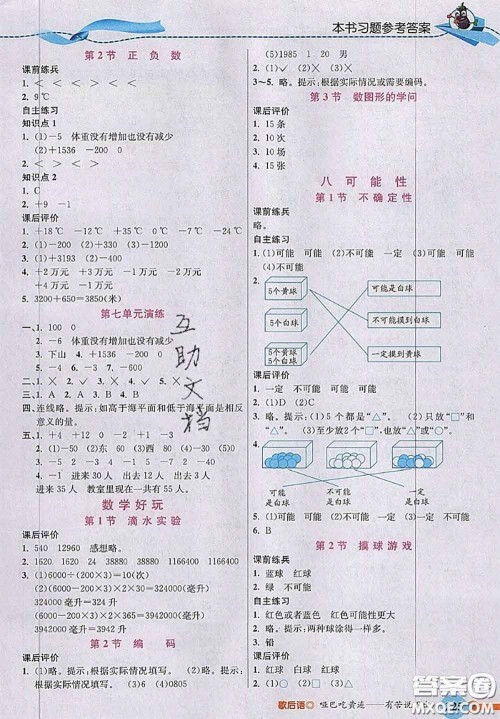 本书习题参考答案
第2节 正 负 数
课前练兵
1. < < < < < <
2. 9℃
自主练习
知识点1
1. (1)-5 体重没有增加也没有减少
(2)+1536 -200 0
2. < > < > <
知识点2
1. C
2. +9 -1
课后评价
1. +18℃ -7℃ 0℃ -15℃ -24℃
2. (1)+3 -3 (2)+1536 -200 0
3. < > < > > <
4. +2万元 +3万元 -2万元 -4万元
+1万元 +4万元
5. 3200+650=3850(米)
第七单元演练
一、1. 100 0
2. -6 体重没有增加也没有减少
3. 下山 4. +200 -400
5. -4 6. -3 -5 7. > < =
二、
三、1. A 2. A 3. B 4. A
四、连线略。提示:如高于海平面和低于海平面是相反
意义的量。
五、1. +4 +12 0 -2 -6
2. -40 -30 0 +20 +50
3. (1)-4 (2)东 50 (3)西 50
4. -1 进来30人 出去12人 出去3人
进来35人 教室里现在一共有55人。
数学好玩
第1节 滴水实验
课后评价
1. 540 12960 感想略。
2. 1620 16200 24 38880 38880 1166400 1166400
3. (1)6000÷(200×3)=10(毫升)
(2)(6000-200×3)×10×6=324000(毫升)
324000毫升=324升
(3)(6000-200×3)×365×2=3942000(毫升)
3942000毫升=3942升
第2节 编 码
课后评价
1. (1)略。提示:根据实际情况填写。 (2)略。提示:
根据实际情况填写。 (3)略。 (4)略。
(5)1985 1 20 男
2. (1)✓ (2)✓ (3)× (4)✓
3~5. 略。提示:根据实际情况或需要编码。
第3节 数图形的学问
课后评价
1. 15条
2. 10次
3. 10场
4. 15张
八 可 能 性
第1节 不确定性
课前练兵
略。
自主练习
1. (1)可能 可能 可能 (2)不可能 一定 (3)可能
可能 可能
2.
5个黄球
可能是白球
5个白球
不可能摸到白球
5个黄球 5个白球
一定摸到黄球
课后评价
1. 一定 不可能 可能 可能
2. (1)D (2)C
3. 略。提示:(1)5个都是“△”。 (2)只放“○”和
“□”。 (3)至少放2个“△”,也放“□”或“○”。
4.
可能
是白球
不可能
是白球
一定
是白球
5. (1)可能 (2)可能 (3)一定 (4)不可能
第2节 摸球游戏
课前练兵
1. 蓝球 红球
2. 绿 不可能
自主练习
1. 红色或者蓝色 可能 红色可能性更大
2. 略。提示:两种颜色球涂得一样多。
3. 铅
课后评价
1. 红球 白球 红球
2. (1)可能 可能
歇后语 哑巴吃黄连——有苦说
互
助
文
档
答案圈
MXQE.COM